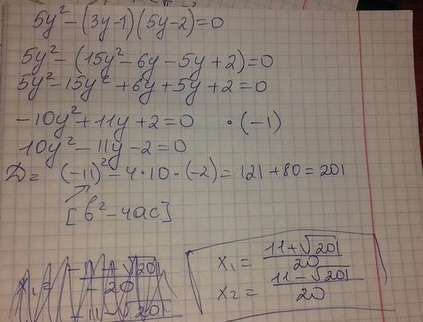 5y² - (3y-1)(5y-2) = 0
5y² - (15y² - 6y - 5y + 2) = 0
5y² - 15y² + 6y + 5y + 2 = 0
-10y² + 11y + 2 = 0 · (-1)
10y² - 11y - 2 = 0
D = (-11)² - 4·10·(-2) = 121 + 80 = 201
[b² - 4ac]
x₁ = (11+√201)/20
x₂ = (11-√201)/20